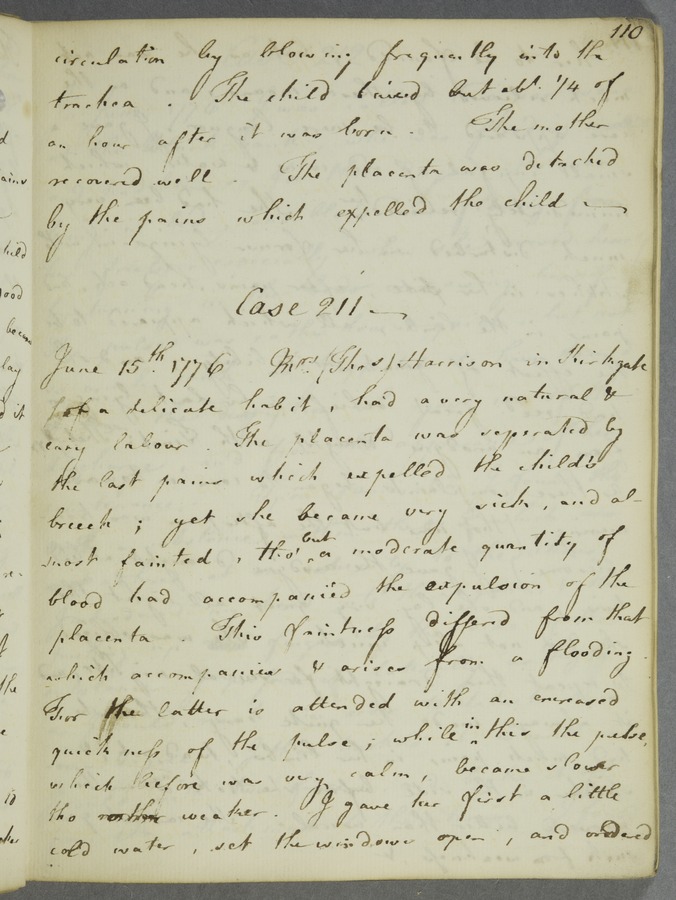 110
circulation by blowing frequently into the
trachea. The child lived but abt. 1/4 of
an hour after it was born. The mother
recovered well. The placenta was detached
by the pains which expelled the child —
Case 211 —
June 15th. 1776 Mrs. (Thos.) Harrison in Kirkgate
of a delicate habit, had a very natural &
easy labour. The placenta was seperated by
the last pains which expelled the child's
breech; yet she became very sick, and al-
most fainted, tho' but a moderate quantity of
blood had accompanied the expulsion of the
placenta. This faintness differed from that
which accompanies & arises from a flooding.
For the latter is attended with an encreased
quickness of the pulse; while in this the pulse,
which before was very calm, became slower
tho weaker. I gave her first a little
cold water, set the windows open, and ordered